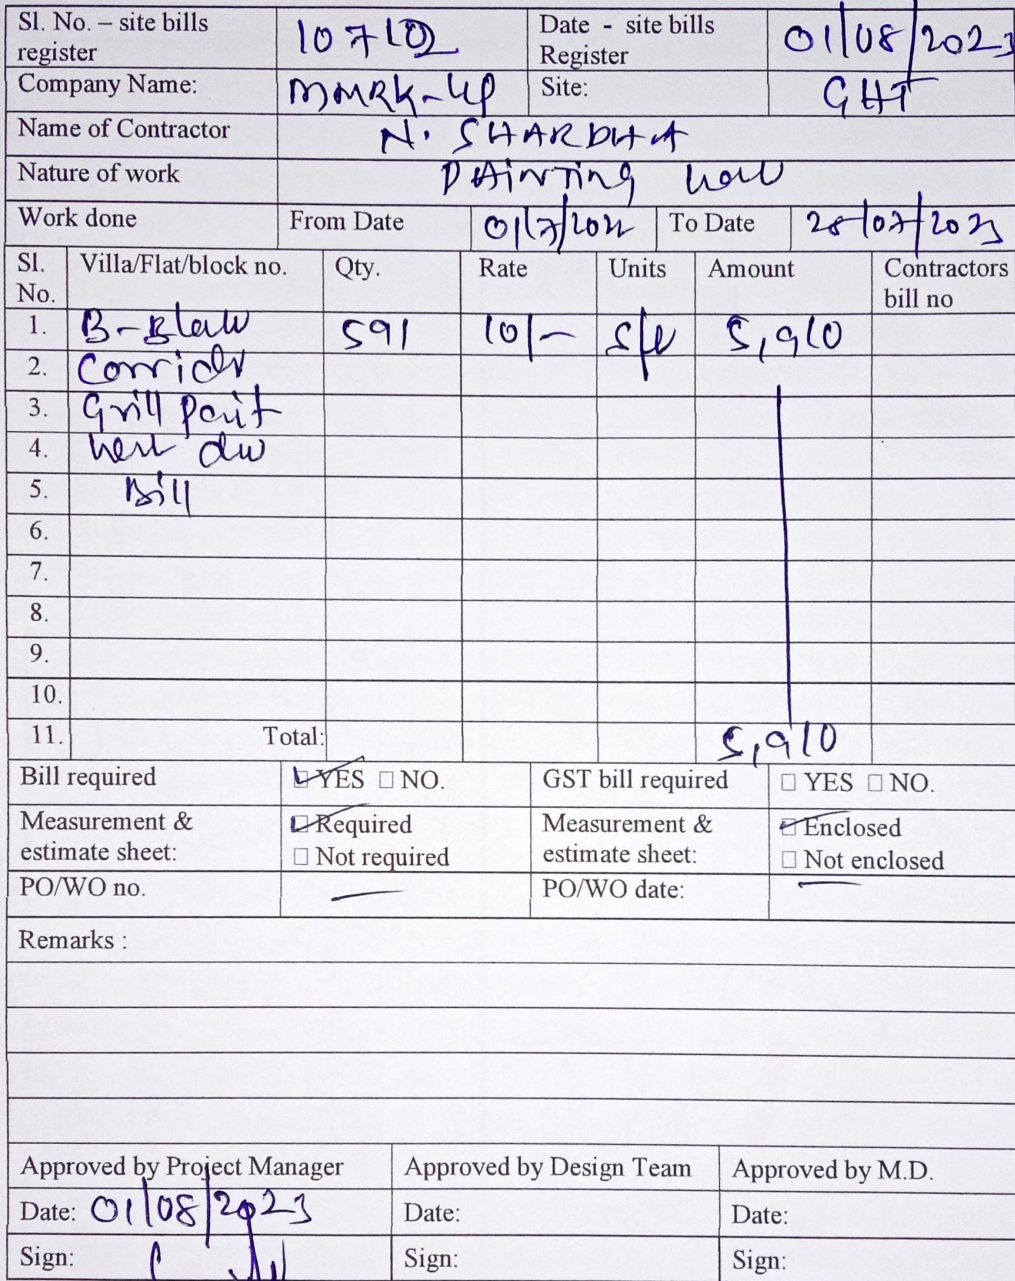 Sl. No. – site bills register 10710 Date - site bills Register 01/08/2023
Company Name: MMRK-UP Site: GHT
Name of Contractor N. SHARDHA
Nature of work PAINTING work
Work done From Date 01/7/202 To Date 28/07/2023
Sl. No. Villa/Flat/block no. Qty. Rate Units Amount Contractors bill no
1. B-Block 591 10/- 5,910
2. Corridor
3. Grill paint
4. work
5. Bill
6.
7.
8.
9
10.
11. Total: 5,910
Bill required ☑ YES □ NO. GST bill required □ YES □ NO.
Measurement & estimate sheet: ☑ Required □ Not required Measurement & estimate sheet: ☑ Enclosed □ Not enclosed
PO/WO no. — PO/WO date: —
Remarks :
Approved by Project Manager Approved by Design Team Approved by M.D.
Date: 01/08/2023 Date: Date:
Sign: Sign: Sign: